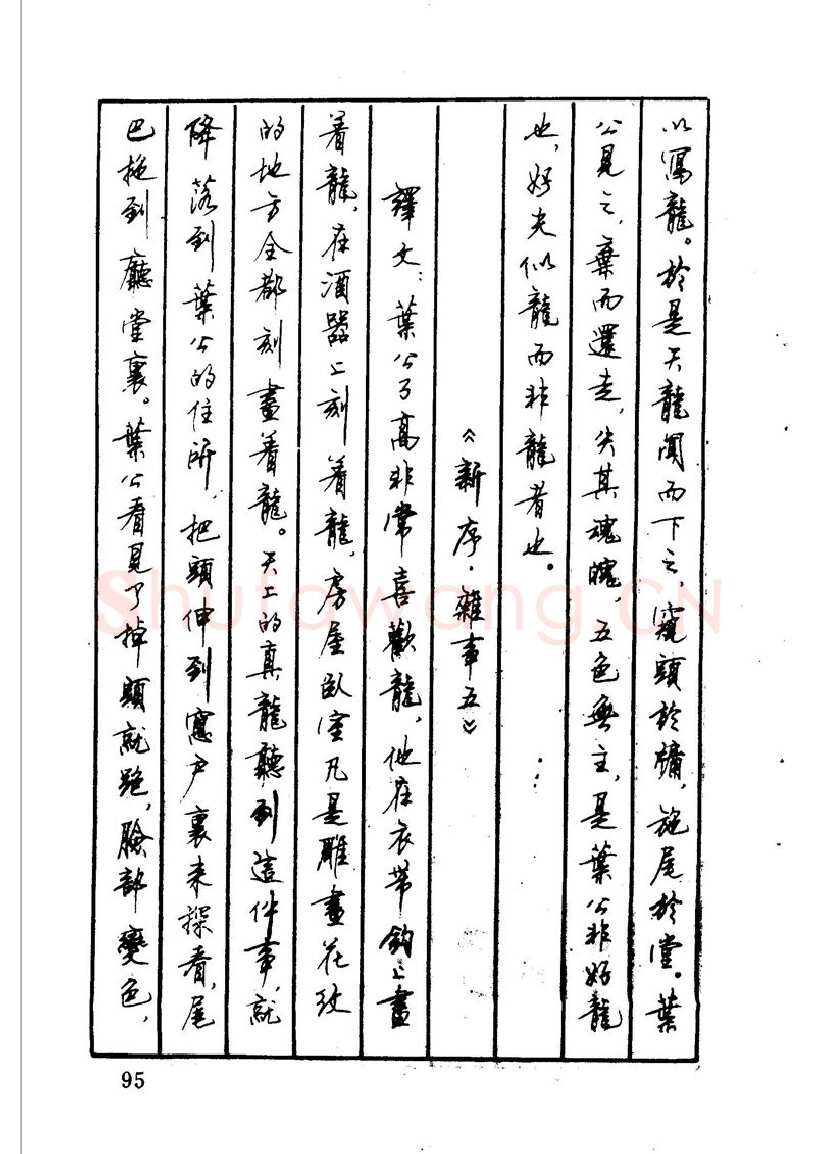 以寫龍。於是天龍聞而下之,窺頭於牖,施尾於堂。葉
公見之,棄而還走,失其魂魄,五色無主,是葉公非好龍
也,好夫似龍而非龍者也。
《新序·雜事五》
譯文:葉公子高非常喜歡龍,他在衣帶鈎上畫
着龍,在酒器上刻着龍,房屋臥室凡是雕畫花紋
的地方全都刻畫着龍。天上的真龍聽到這件事,就
降落到葉公的住所,把頭伸到窻户裏來探看,尾
巴拖到廳堂裏。葉公看見了掉頭就跑,臉部變色,
95
Shufawang.CN